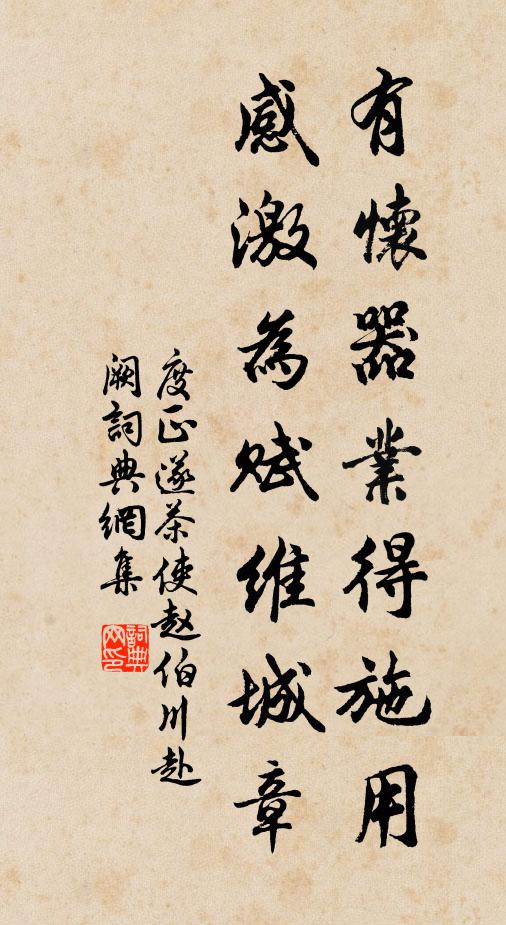 有懷器業得施用
感激為賦維城章
度正遂茶使赵伯川赴
阙詞典網集
詞典网印